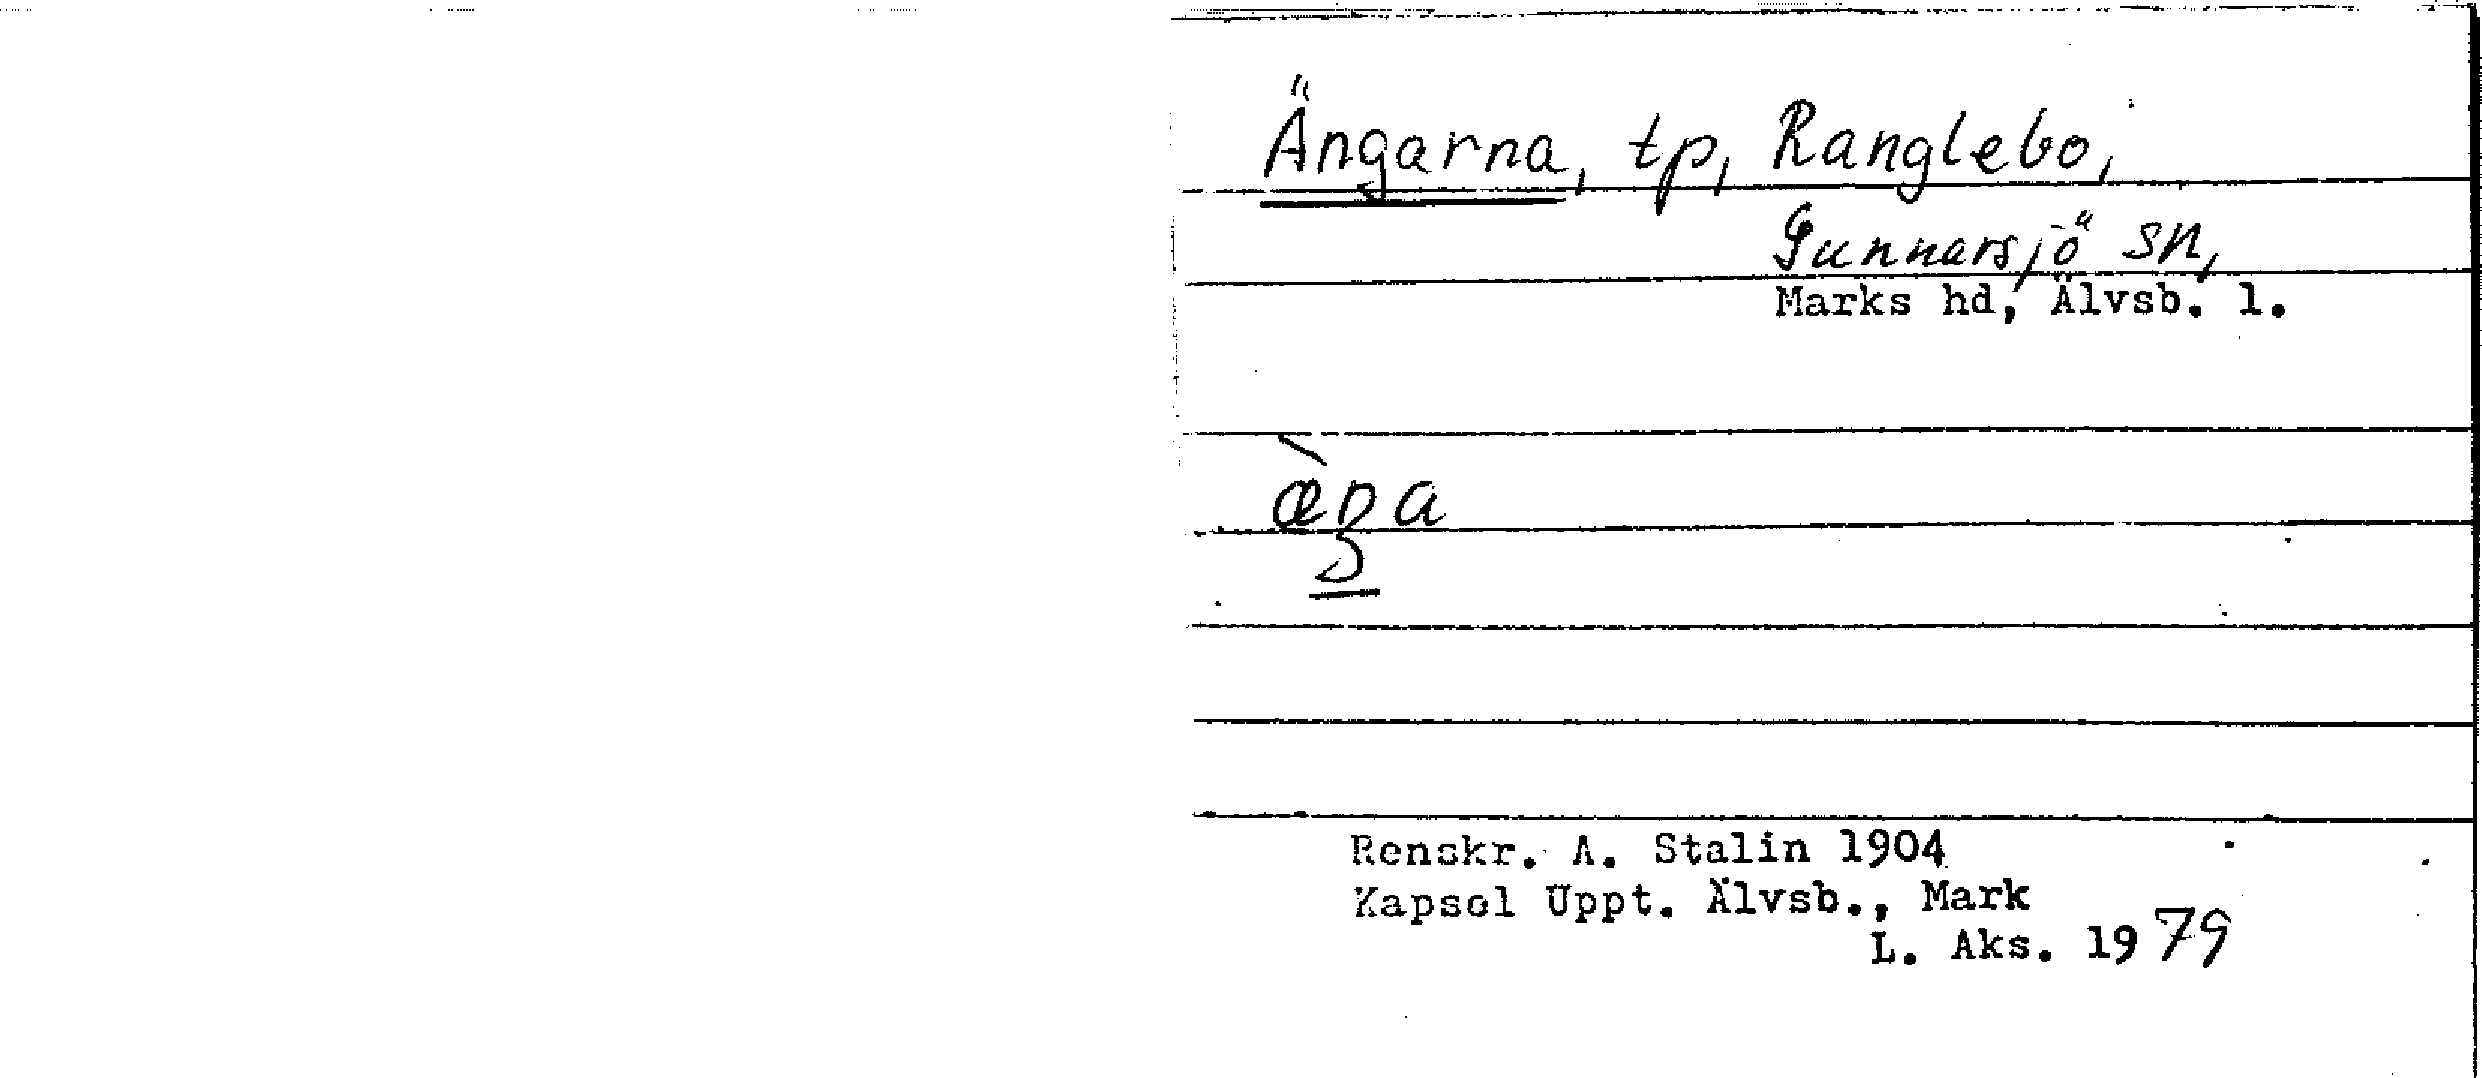 Ängarna, tp, Ranglebo,
Gunnarsjö sn,
Marks hd, Älvsb. l.
Renskr. A. Stalin 1904
Kapsel Uppt. Älvsb., Mark
L. Aks. 1979